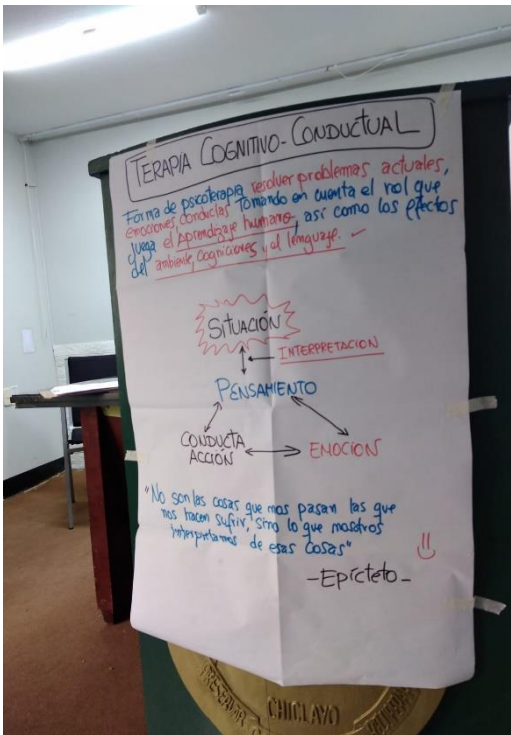 TERAPIA COGNITIVO-CONDUCTUAL
Forma de psicoterapia resolver problemas actuales,
emociones, conductas Tomando en cuenta el rol que
juega el Aprendizaje humano, así como los efectos
del ambiente, cogniciones y al lenguaje.
SITUACIÓN
INTERPRETACION
PENSAMIENTO
CONDUCTA
ACCIÓN
EMOCION
"No son las cosas que nos pasan las que
nos hacen sufrir, sino lo que nosotros
interpretamos de esas cosas"
-Epícteto-
PRESERVAR
CHICLAYO